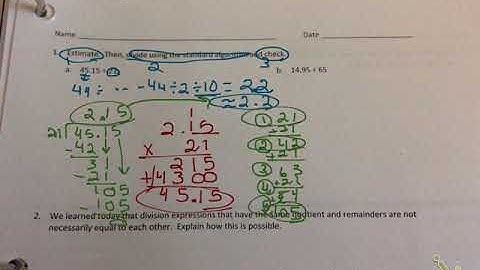 Name Date
1. Estimate. Then, divide using the standard algorithm and check.
1 2 3
a. 45.15 ÷ 21 b. 14.95 ÷ 65
44 ÷ ÷ 2 ÷ 10 = 22
≈ 2.2
2.15
21 45.15
- 42
31
- 21
105
- 105
1
2.15
x 21
215
+ 4300
45.15
1 21
+ 21
2 42
+ 21
3 63
4
2. We learned today that division expressions that have the same quotient and remainders are not
necessarily equal to each other. Explain how this is possible.